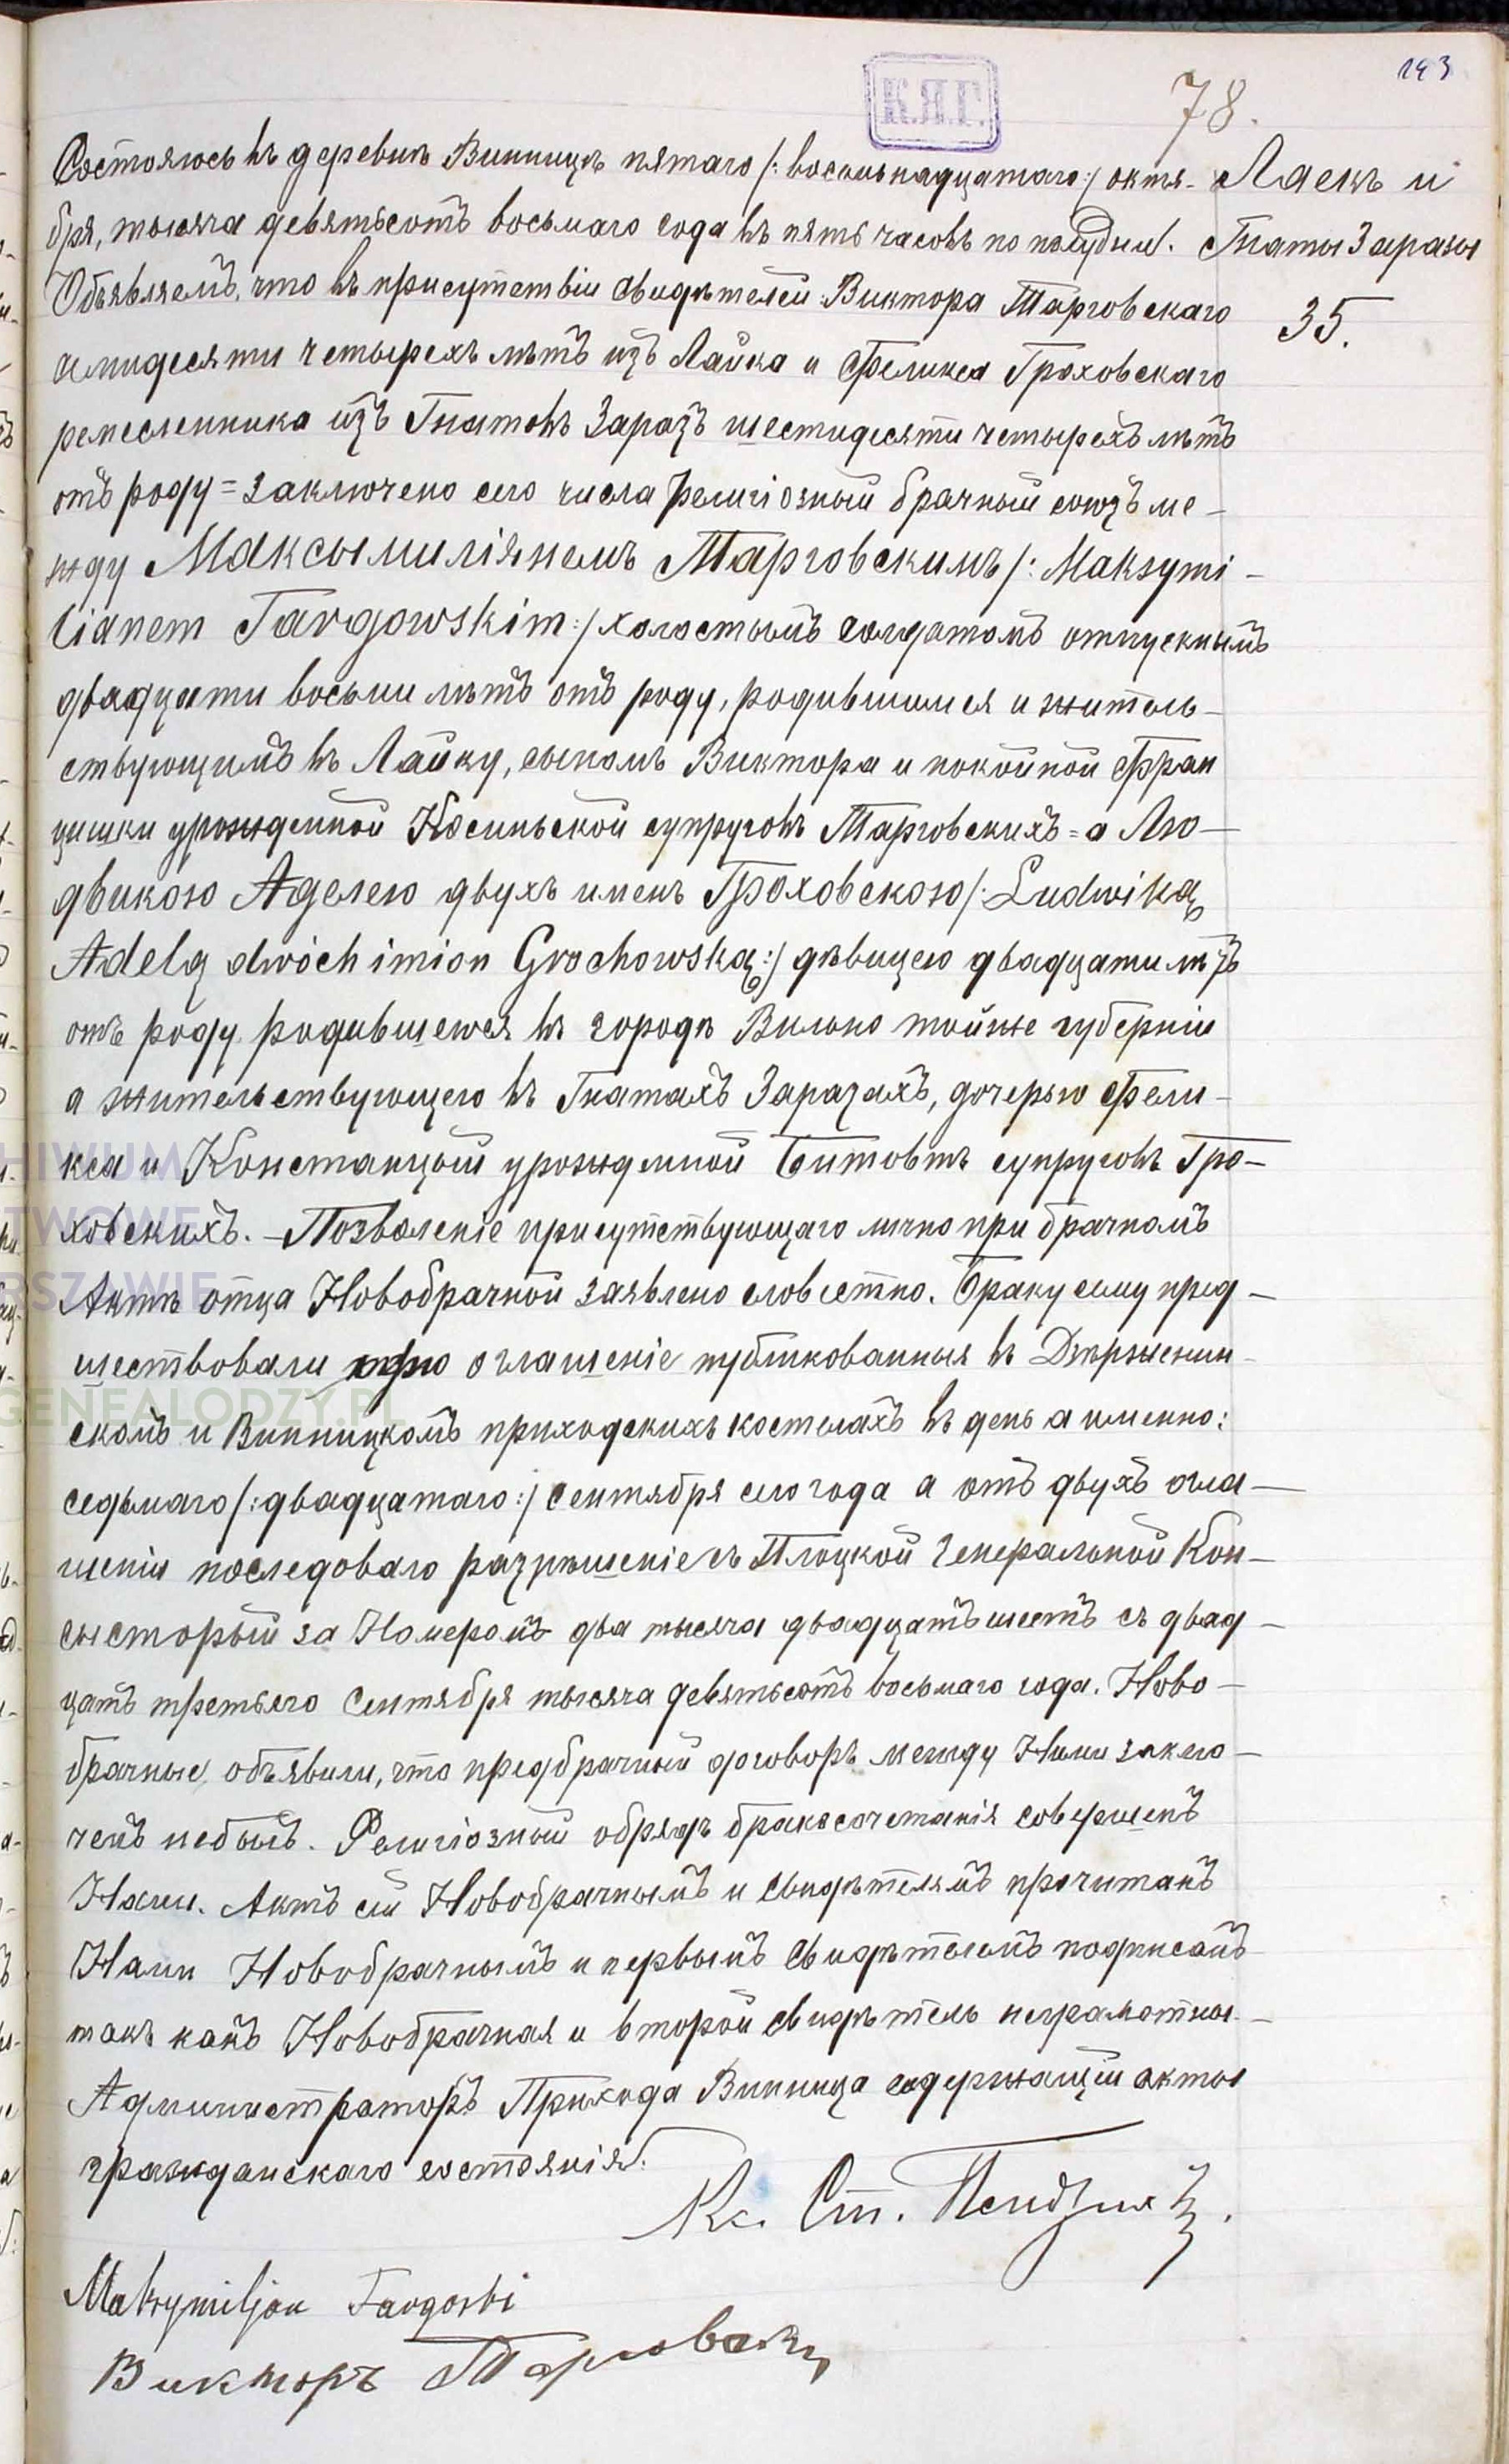 193
К.Я.Г.
78.
Лаекъ и
Гнаты Заразы
35.
Состоялось въ деревнѣ Винницѣ пятаго /: восемьнадцатаго :/ октя-
бря, тысяча девятьсотъ восьмаго года въ пять часовъ по полудни.
Объявляемъ, что въ присутствіи свидѣтелей: Виктора Тарговскаго
семидесяти четырехъ лѣтъ изъ Лайка и Феликса Гроховскаго
ремесленника изъ Гнатовъ Заразъ шестидесяти четырехъ лѣтъ
отъ роду = заключено сего числа религіозный брачный союзъ ме-
жду Максымиліянемъ Тарговскимъ /: Maksymi-
lianem Targowskim :/ холостымъ солдатомъ отпускнымъ
двадцати восьми лѣтъ отъ роду, родившимся и житель-
ствующимъ въ Лайку, сыномъ Виктора и покойной Фран
цишки урожденной Косиньской супруговъ Тарговскихъ = а Лю-
двикою Аделею двухъ именъ Гроховскою /: Ludwiką
Adelą dwóch imion Grochowską :/ дѣвицею двадцати лѣтъ
отъ роду родившеюся въ городѣ Вильно тойже губерніи
а жительствующею въ Гнатахъ Заразахъ, дочерью Фели-
кса и Констанцый урожденной Битовтъ супруговъ Гро-
ховскихъ. - Позволеніе присутствующаго лично при брачномъ
Актѣ отца Новобрачной заявлено словестно. Браку сему пред-
шествовали оглашеніе публикованныя въ Дзѣржении-
скомъ и Винницкомъ приходскихъ костелахъ въ день а именно:
седьмаго /: двадцатаго :/ Сентября сего года а отъ двухъ огла-
шеніи последовало разрѣшеніе съ Плоцкой Генеральной Кон-
сысторыи за Номеромъ два тысяча двадцать шесть съ двад-
цать третьяго Сентября тысяча девятьсотъ восьмаго года. Ново-
брачные объявили, что предбрачный договоръ между Ними заклю-
ченъ небылъ. Религіозный обрядъ бракосочетанія совершенъ
Нами. Актъ сей Новобрачнымъ и Свидѣтелямъ прочитанъ
Нами Новобрачнымъ и первымъ Свидѣтелемъ подписанъ
такъ какъ Новобрачная и второй Свидѣтель неграмотны. -
Администраторъ Прихода Винница содержащій акты
гражданскаго состоянія.
Кс. Ст.
Maksymiljan Targoski
Викторъ Тарговски